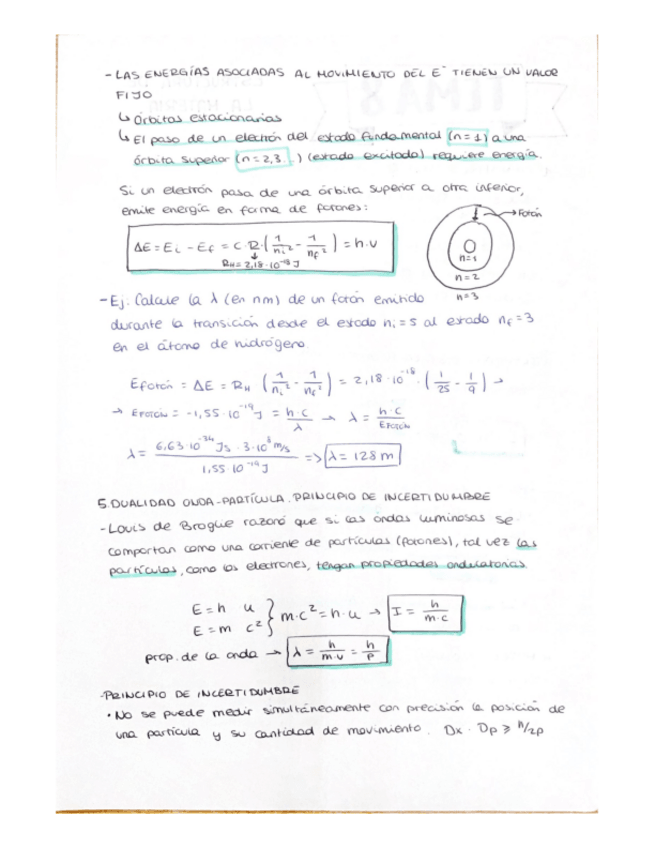 - LAS ENERGÍAS ASOCIADAS AL MOVIMIENTO DEL E⁻ TIENEN UN VALOR
FIJO
↳ Órbitas estacionarias
↳ El paso de un electrón del estado fundamental (n=1) a una
órbita superior (n=2,3...) (estado excitado) requiere energía.
Si un electrón pasa de una órbita superior a otra inferior,
emite energía en forma de fotones:
ΔE = Ei - Ef = C·R·(1/ni² - 1/nf²) = h·v
RH = 2,18·10⁻¹⁸ J
→ Fotón
n=1
n=2
n=3
- Ej: Calcule la λ (en nm) de un fotón emitido
durante la transición desde el estado ni = 5 al estado nf = 3
en el átomo de hidrógeno
Efotón = ΔE = RH (1/ni² - 1/nf²) = 2,18·10⁻¹⁸·(1/25 - 1/9) →
→ EFOTÓN = -1,55·10⁻¹⁹ J = h·c/λ → λ = h·c/EFOTÓN
λ = 6,63·10⁻³⁴ Js · 3·10⁸ m/s / 1,55·10⁻¹⁹ J => λ = 128 m
5. DUALIDAD ONDA-PARTÍCULA. PRINCIPIO DE INCERTIDUMBRE
- Louis de Broglie razonó que si las ondas luminosas se
comportan como una corriente de partículas (fotones), tal vez las
partículas, como los electrones, tengan propiedades ondulatorias.
E = h u
E = m c² } m·c² = h·u → I = h/m·c
prop. de la onda → λ = h/m·v = h/P
·PRINCIPIO DE INCERTIDUMBRE
• No se puede medir simultáneamente con precisión la posición de
una partícula y su cantidad de movimiento. Dx · Dp ≥ h/2p